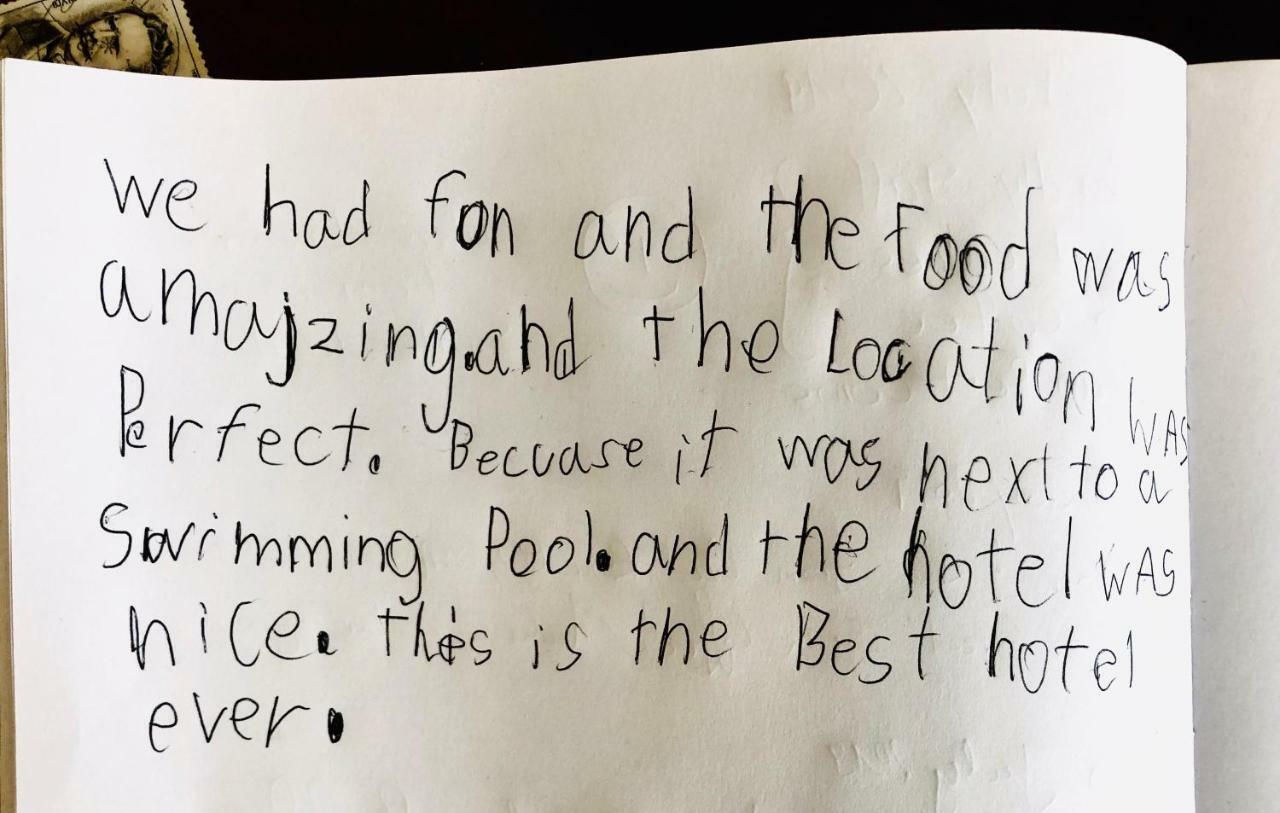 we had fon and the Food was
amajzing.and the Location was
Perfect. Becuase it was next to a
Swimming Pool. and the hotel was
nice. this is the Best hotel
ever.